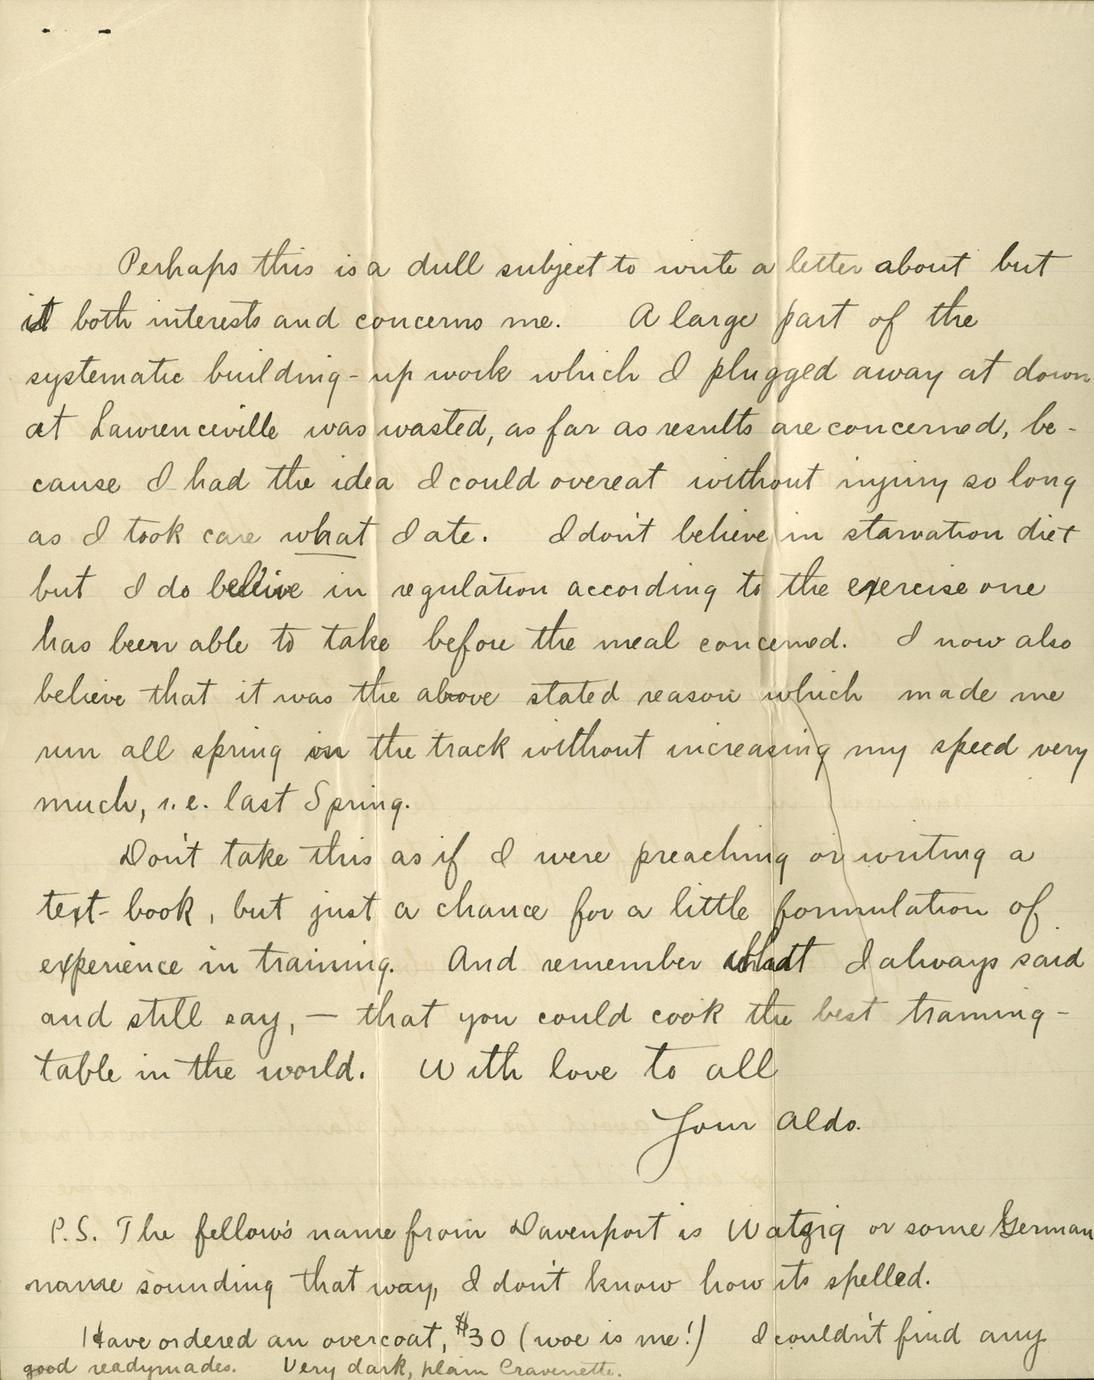 Perhaps this is a dull subject to write a letter about but
it both interests and concerns me. A large part of the
systematic building-up work which I plugged away at down
at Lawrenceville was wasted, as far as results are concerned, be-
cause I had the idea I could overeat without injury so long
as I took care what I ate. I don't believe in starvation diet
but I do believe in regulation according to the exercise one
has been able to take before the meal concerned. I now also
believe that it was the above stated reason which made me
run all spring on the track without increasing my speed very
much, i.e. last Spring.
Don't take this as if I were preaching or writing a
text-book, but just a chance for a little formulation of
experience in training. And remember what I always said
and still say, — that you could cook the best training-
table in the world. With love to all
Your Aldo.
P.S. The fellow's name from Davenport is Watzig or some German
name sounding that way, I don't know how its spelled.
Have ordered an overcoat, $30 (woe is me!) I couldn't find any
good readymades. Very dark, plain Cravenette.